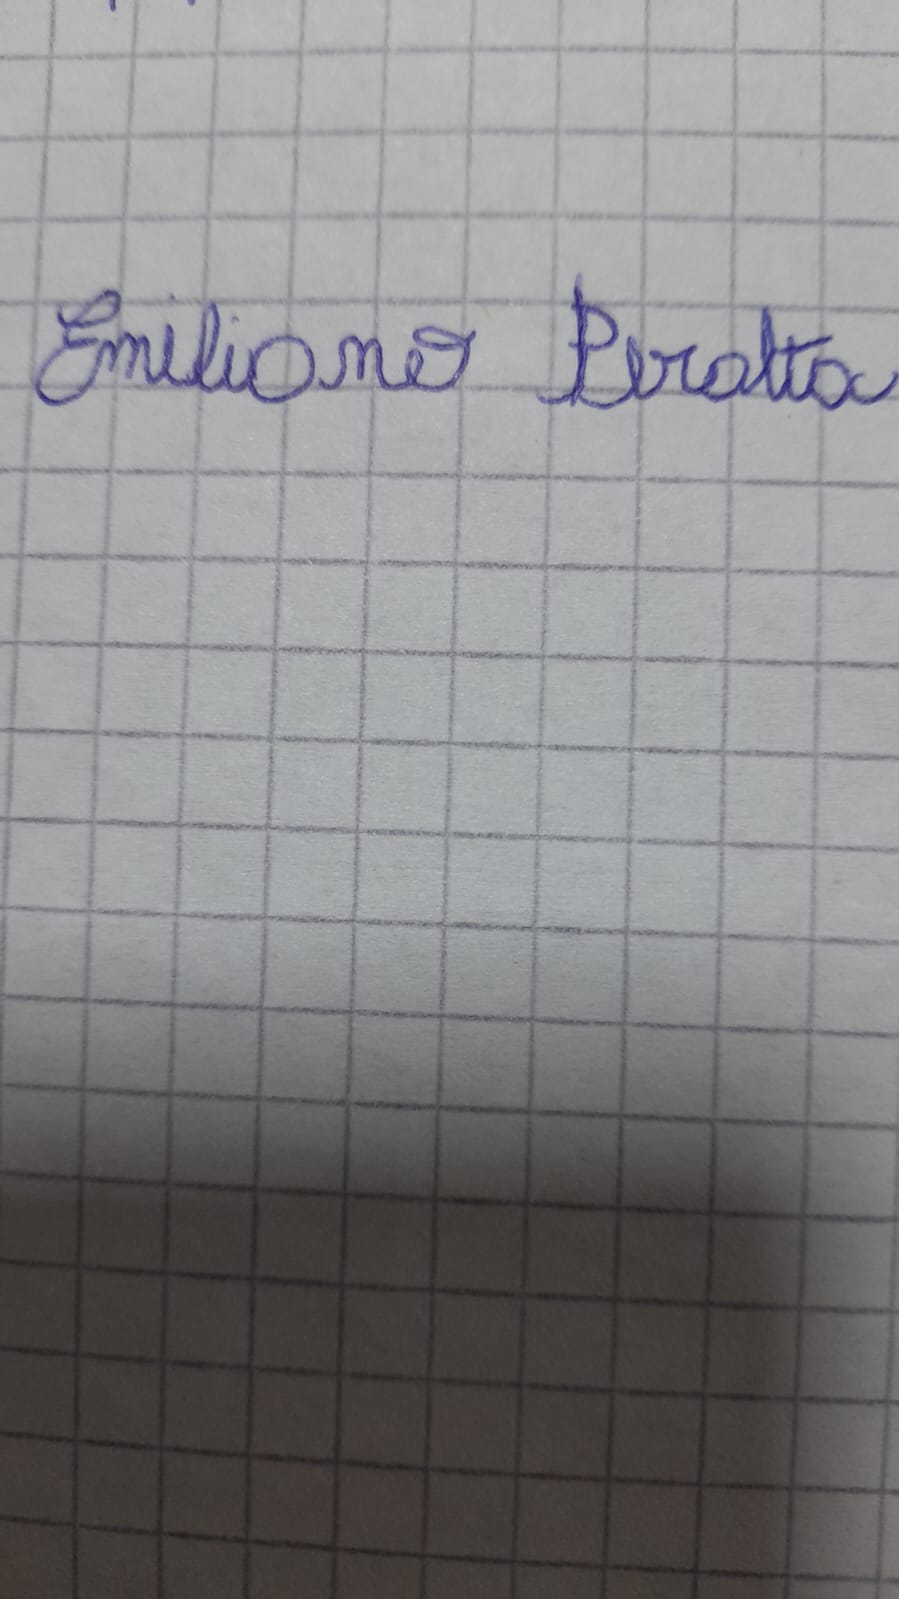 Emiliano Peralta